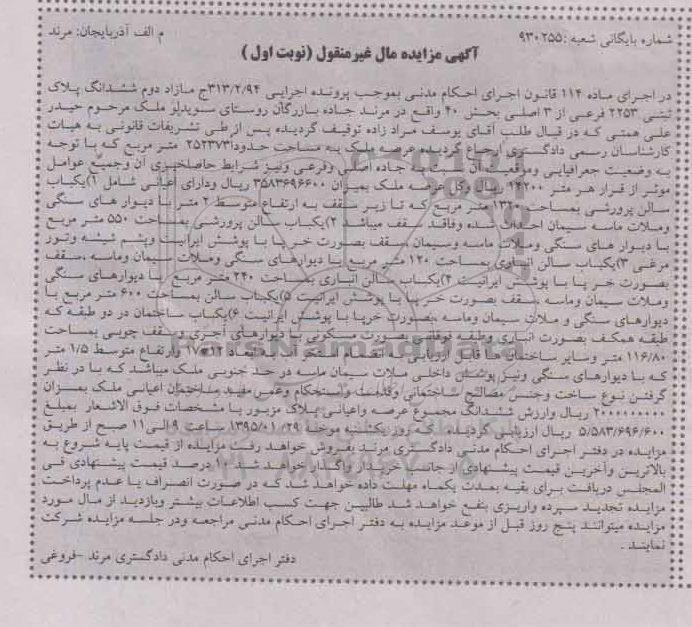 شماره بایگانی شعبه: ۹۳۰۲۵۵
م الف آذربایجان: مرند
آگهی مزایده مال غیرمنقول (نوبت اول)
در اجرای ماده ۱۱۴ قانون اجرای احکام مدنی بموجب پرونده اجرایی ۳۱۳/۲/۹۴ج مازاد دوم ششدانگ پلاک
ثبتی ۲۲۵۳ فرعی از ۳ اصلی بخش ۴۰ واقع در مرند جاده بازرگان روستای سویدلر ملک مرحوم حیدر
علی همتی که در قبال طلب آقای یوسف مراد زاده توقیف گردیده پس از طی تشریفات قانونی به هیات
کارشناسان رسمی دادگستری ارجاع گردیده عرصه ملک به مساحت حدودا ۲۵۲۳۷۳ متر مربع که با توجه
به وضعیت جغرافیایی وموقعیت آن نسبت به جاده اصلی وفرعی ونیز شرایط حاصلخیزی آن وجمیع عوامل
موثر از قرار هر متر ۱۴۲۰۰ ریال وکل عرصه ملک بمیزان ۳۵۸۳۶۹۶۶۰۰ ریال ودارای اعیانی شامل ۱)یکباب
سالن پرورشی بمساحت ۱۳۲۰ متر مربع که تا زیر سقف به ارتفاع متوسط ۲ متر با دیوار های سنگی
وملات ماسه سیمان احداث شده وفاقد سقف میباشد ۲)یکباب سالن پرورشی بمساحت ۵۵۰ متر مربع
با دیوار های سنگی وملات ماسه وسیمان ،سقف بصورت خر پا با پوشش ایرانیت وپشم شیشه وتور
مرغی ۳)یکباب سالن انباری بمساحت ۱۲۰ متر مربع با دیوارهای سنگی وملات سیمان وماسه ،سقف
بصورت خر پا با پوشش ایرانیت ۴)یکباب سالن انباری بمساحت ۲۴۰ متر مربع با دیوارهای سنگی
وملات سیمان وماسه ،سقف بصورت خر پا با پوشش ایرانیت ۵)یکباب سالن بمساحت ۶۰۰ متر مربع با
دیوارهای سنگی و ملات سیمان وماسه ،بصورت خرپا با پوشش ایرانیت ۶)یکباب ساختمان در دو طبقه که
طبقه همکف بصورت انباری وطبقه فوقانی بصورت مسکونی با دیوارهای آجری وسقف چوبی بمساحت
۱۱۶/۸۰ متر وسایر ساختمان ها فاقد ارزیابی به انضمام استخر آب به ابعاد ۱۲*۱۷ وارتفاع متوسط ۱/۵ متر
که با دیوارهای سنگی ونیز پوشش داخلی ملات سیمان ماسه در حد جنوبی ملک میباشد که با در نظر
گرفتن نوع ساخت وجنس مصالح ساختمانی وقدمت واستحکام وعمر مفید ساختمان اعیانی ملک بمیزان
۲۰۰۰۰۰۰۰۰۰ ریال وارزش ششدانگ مجموع عرصه واعیانی پلاک مزبور با مشخصات فوق الاشعار بمبلغ
۵/۵۸۳/۶۹۶/۶۰۰ ریال ارزیابی گردیده که روز یکشنبه مورخه ۱۳۹۵/۰۱/۲۹ ساعت ۹ الی۱۱ صبح از طریق
مزایده در دفتر اجرای احکام مدنی دادگستری مرند بفروش خواهد رفت مزایده از قیمت پایه شروع به
بالاترین وآخرین قیمت پیشنهادی از جانب خریدار واگذار خواهد شد ۱۰ درصد قیمت پیشنهادی فی
المجلس دریافت برای بقیه بمدت یکماه مهلت داده خواهد شد که در صورت انصراف یا عدم پرداخت
مزایده تجدید سپرده واریزی بنفع خواهد شد طالبین جهت کسب اطلاعات بیشتر وبازدید از مال مورد
مزایده میتوانند پنج روز قبل از موعد مزایده به دفتر اجرای احکام مدنی مراجعه ودر جلسه مزایده شرکت
نمایند .
دفتر اجرای احکام مدنی دادگستری مرند -فروغی